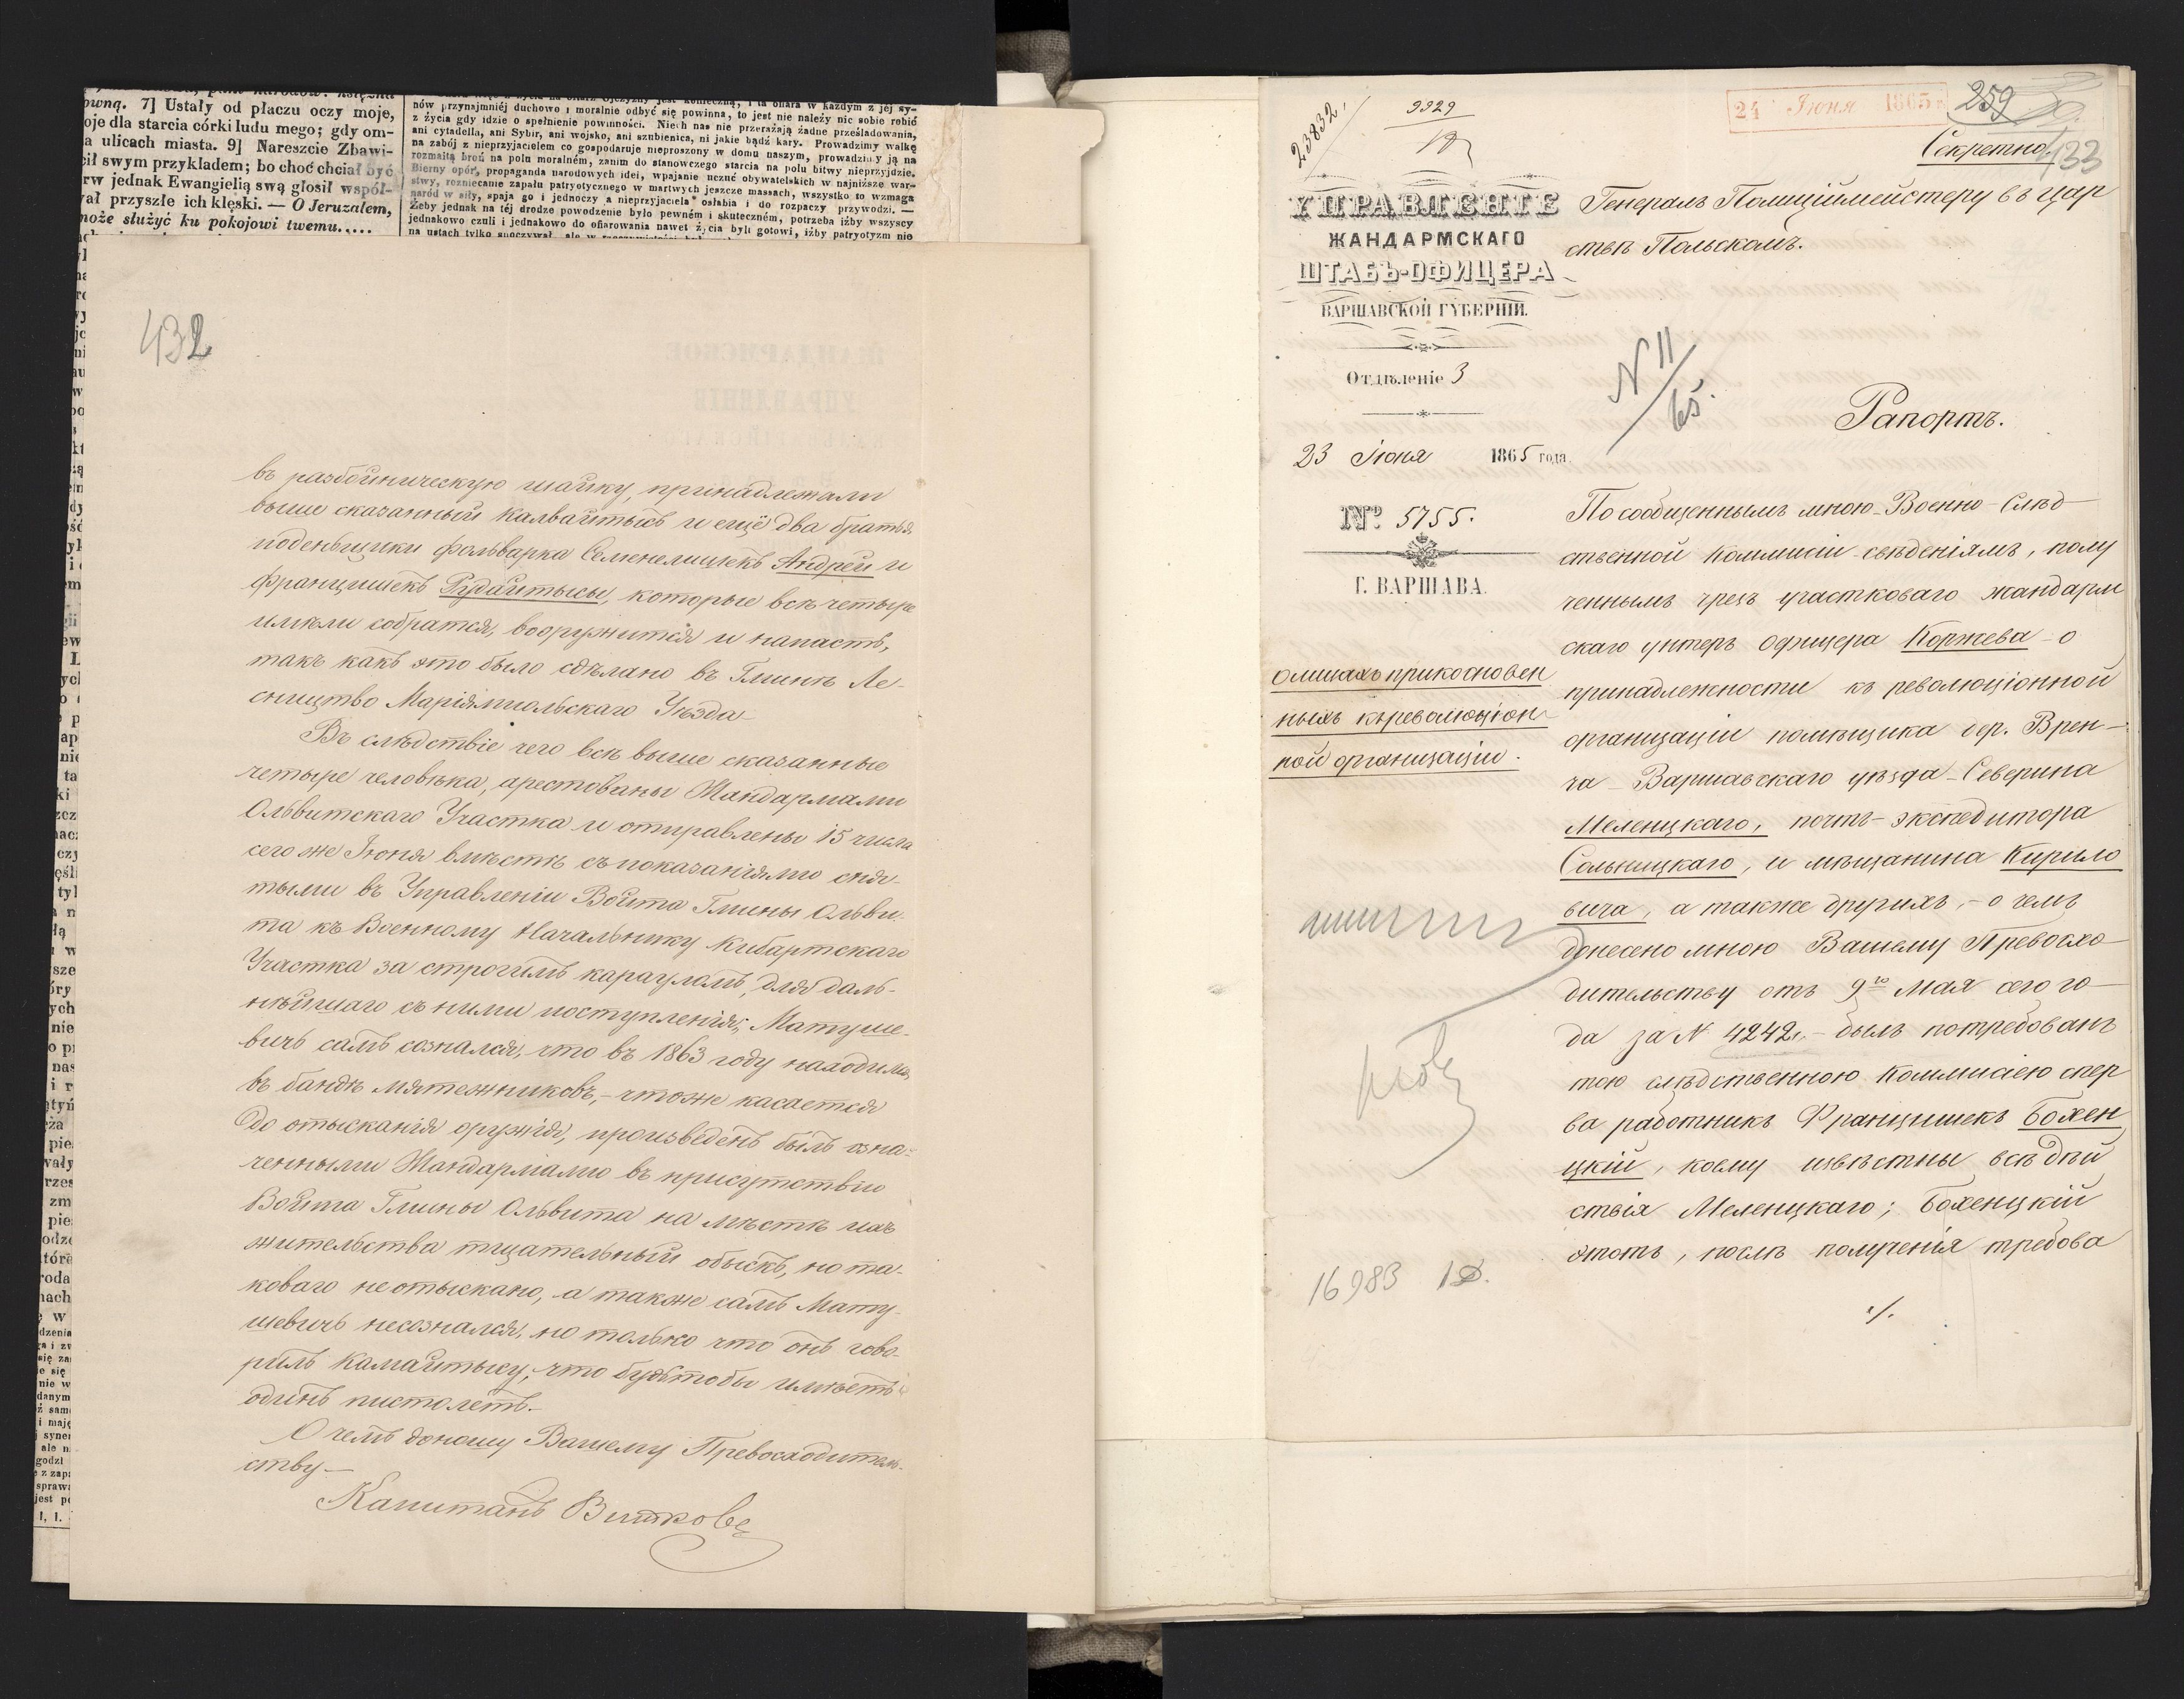 owną. 7] Ustały od płaczu oczy moje,
oje dla starcia córki ludu mego; gdy om-
a ulicach miasta. 9] Nareszcie Zbawi-
cił swym przykladem; bo choć chciał być
rw jednak Ewangielią swą głosił współ-
ał przyszłe ich klęski. — O Jeruzalem,
może służyć ku pokojowi twemu.....
nów przynajmniéj duchowo i moralnie odbyć się powinna, to jest nie należy nic sobie robić
z życia gdy idzie o spełnienie powinności. Niech nas nie przerażają żadne prześladowania,
ani cytadella, ani Sybir, ani wojsko, ani szubienica, ni jakie bądź kary. Prowadzimy walkę
na zabój z nieprzyjacielem co gospodaruje nieproszony w domu naszym, prowadzimy ją na
rozmaitą broń na polu moralném, zanim do stanowczego starcia na polu bitwy nieprzyjdzie.
Bierny opór, propaganda narodowych idei, wpajanie uczuć obywatelskich w najniższe war-
stwy, rozniecanie zapału patryotycznego w martwych jeszcze massach, wszystko to wzmaga
naród w siły, spaja go i jednoczy a nieprzyjaciela osłabia i do rozpaczy przywodzi. —
Żeby jednak na téj drodze powodzenie było pewném i skuteczném, potrzeba iżby wszyscy
jednakowo czuli i jednakowo do ofiarowania nawet życia byli gotowi, iżby patryotyzm nie
432
въ разбойническую шайку, принадлежали
выше сказанный Калвайтысъ и ещё два братья
поденьщики фольварка Семенелишекъ Андрей и
Францишекъ Рудайтысы, которые все четыре
имели собратся, вооружится и напасть,
такъ какъ это было сделано въ Глинк Ле-
сництво Маріямпольскаго Уезда
Въ следствіе чего все выше сказанные
четыре человека, арестованы Жандармами
Ольвитскаго Участка и отправлены 15 числа
сего же Іюня вместе съ показаніями сня-
тыми въ Управленіи Войта Гмины Ольви-
та къ Военному Начальнику Кибартскаго
Участка за строгимъ карауломъ, для даль-
нейшаго съ ними поступленія; Матуше-
вичъ самъ сознался, что въ 1863 году находился
въ банде мятежниковъ, - чтоже касается
до отысканія оружія, произведенъ былъ озна-
ченными Жандармами въ присутствіи
Войта Гмины Ольвита на месте ихъ
жительства тщательный обыскъ, но та-
коваго не отыскано, а также самъ Мату-
шевичъ несознался, но только что онъ гово-
рилъ Камайтысу, что будьтобы имеетъ
одинъ пистолетъ.-
О чемъ доношу Вашему Превосходитель-
ству —
Капитанъ Витковс
23832
9329
24 Іюня 1865 г.
259
Секретно
433
УПРАВЛЕНІЕ
ЖАНДАРМСКАГО
ШТАБЪ-ОФИЦЕРА
ВАРШАВСКОЙ ГУБЕРНІИ.
Отдѣленіе 3
23 Іюня 1865 года.
№ 5755.
Г. ВАРШАВА.
О лицахъ прикосновен
ныхъ къ революціон-
ной организаціи.
16983
Генералъ Полиціймейстеру въ Цар
ствѣ Польскомъ.
N 11/65.
Рапортъ.
По сообщеннымъ мною Военно-Слѣд
ственной Коммисіи свѣденіямъ, полу
ченнымъ чрезъ участковаго жандарм
скаго унтеръ офицера Коржева - о
принадлежности къ революціонной
организаціи помѣщика дер. Врен-
ча Варшавскаго уѣзда Северина
Меленцкаго, почтъ-экспедитора
Сольницкаго, и мѣщанина Кирило
вича, а также другихъ, - о чемъ
донесено мною Вашему Превосхо-
дительству отъ 9го Мая сего го-
да за N 4242, - былъ потребованъ
тою слѣдственною Коммисіею спер
ва работникъ Францишекъ Бохен
цкій, коему извѣстны всѣ дѣй
ствія Меленцкаго; Бохенцкій
этотъ, послѣ полученія требова
./.